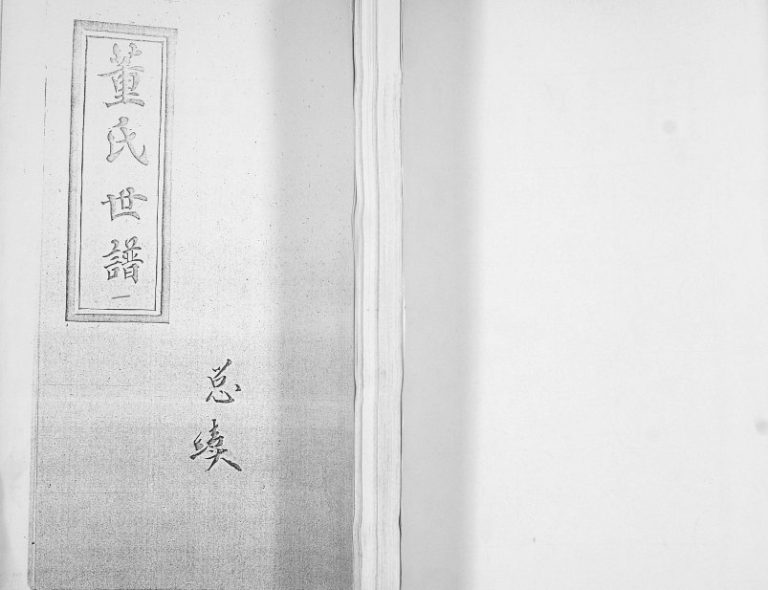 董氏世譜一
总續